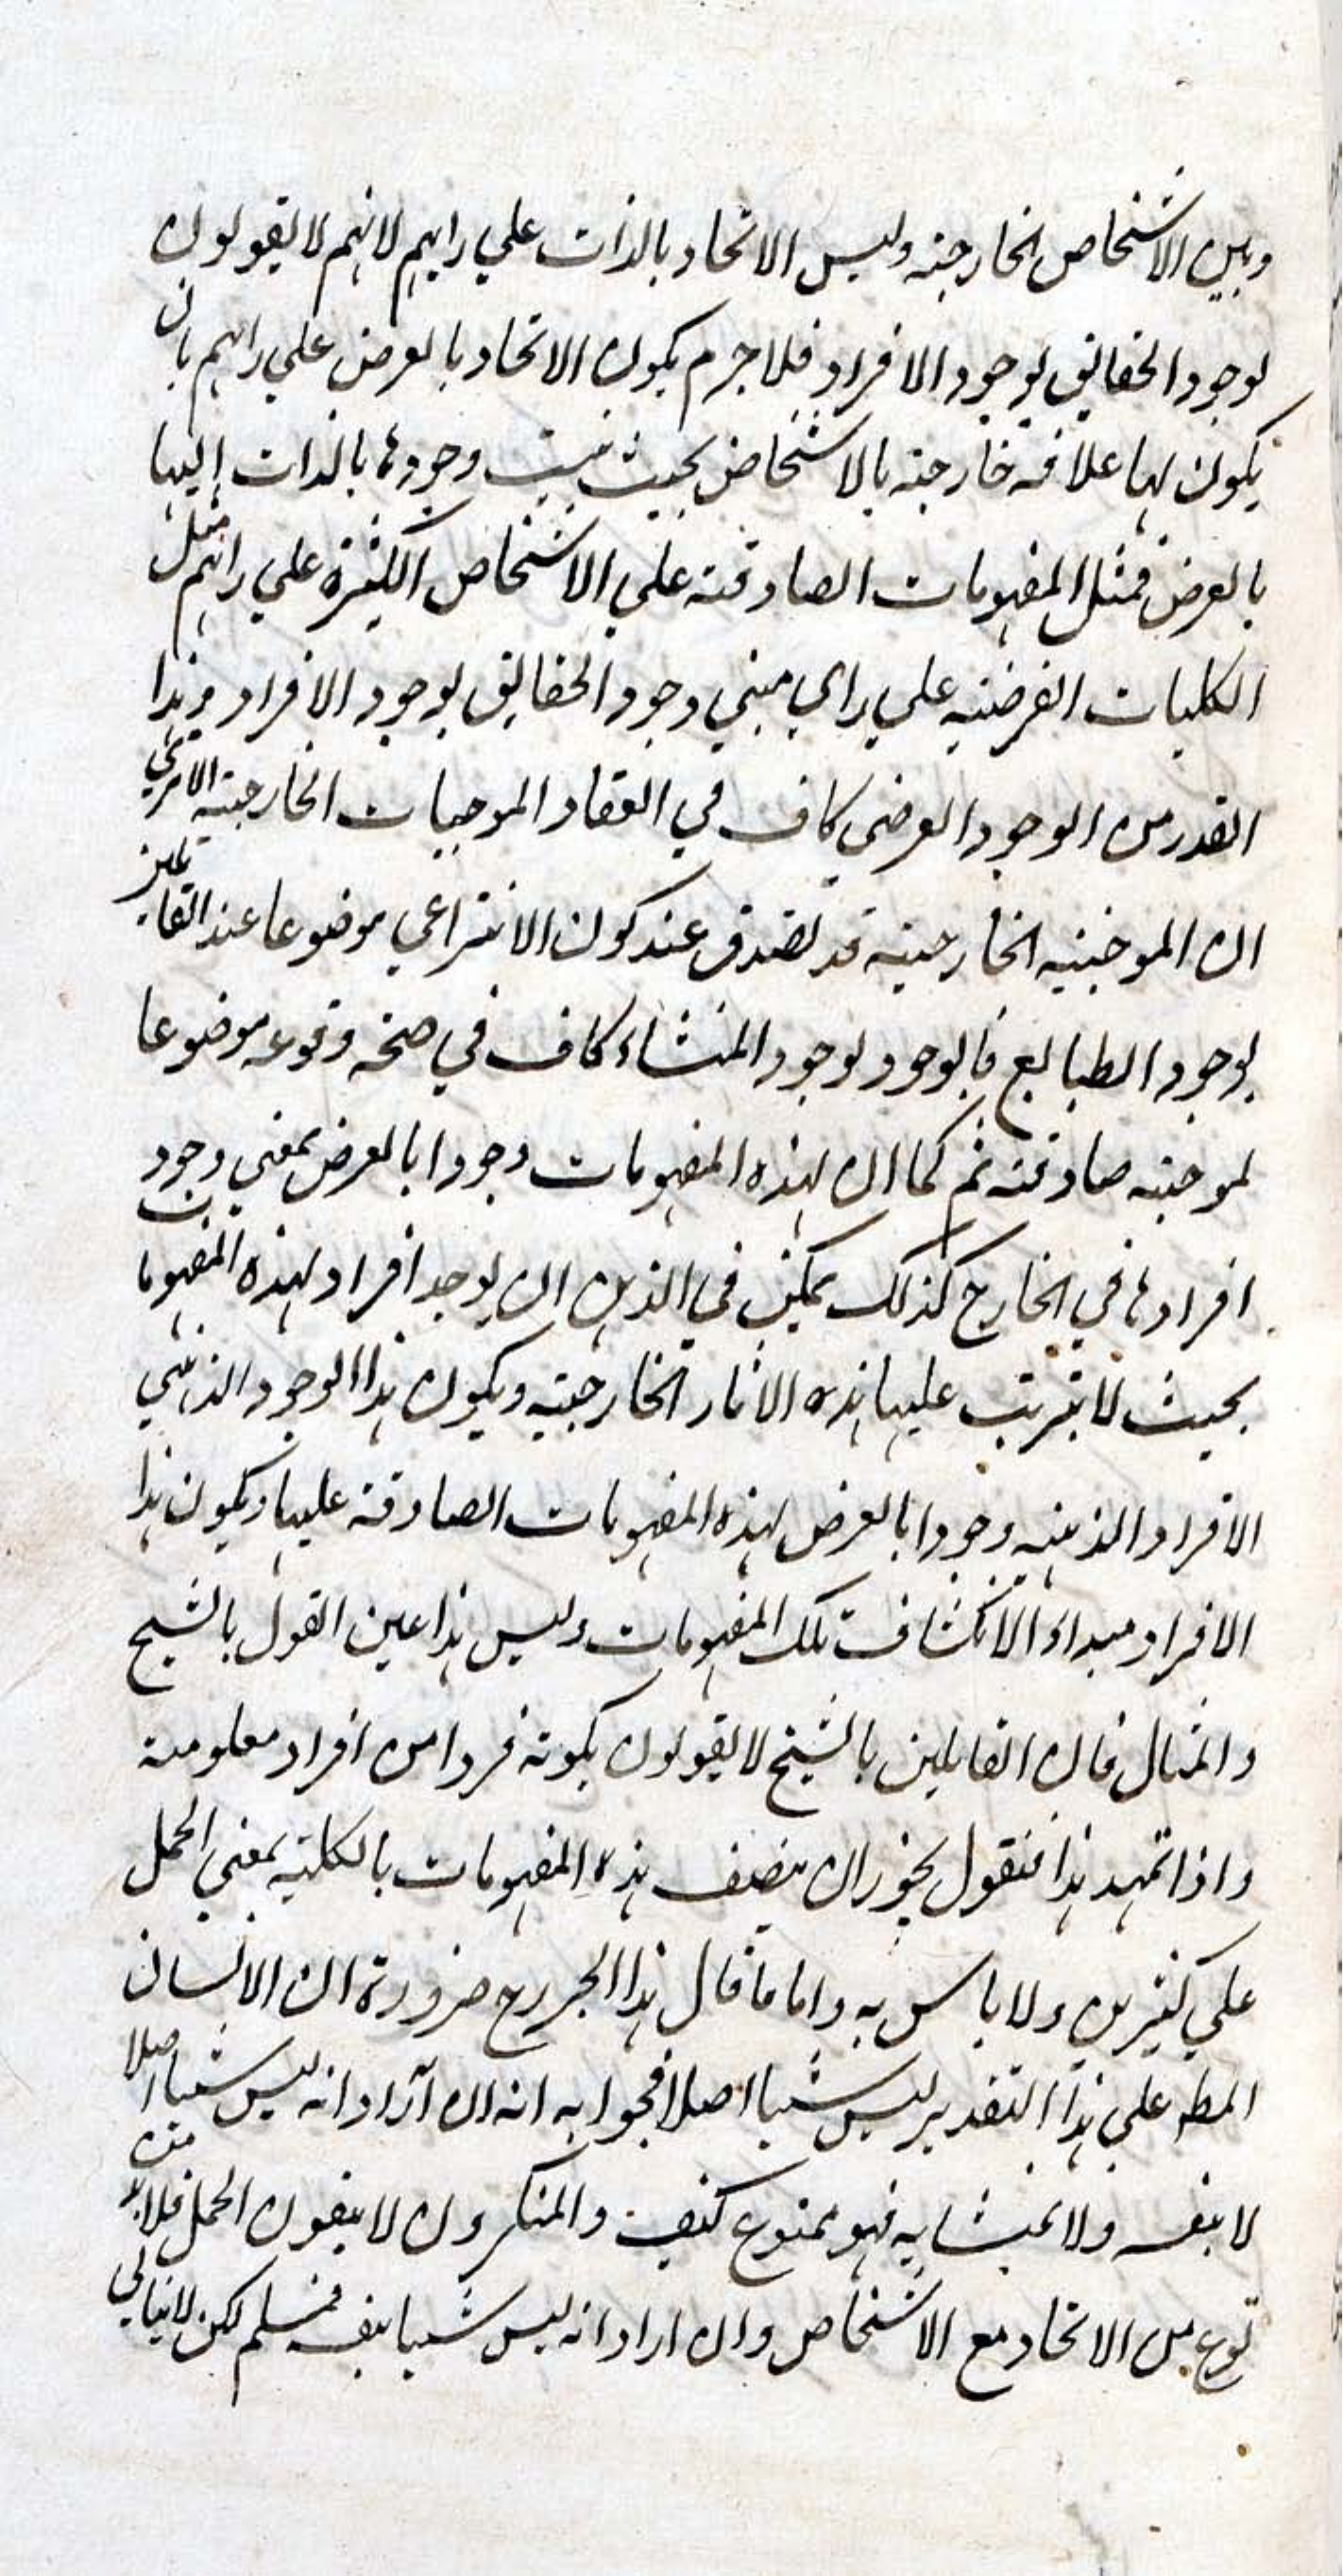 وبين الاشخاص الخارجية وليس الاتحاد بالذات علي رايهم لانهم لا يقولون
بوجود الحقايق بوجود الافراد فلا جرم يكون الاتحاد بالعرض علي رايهم بان
يكون لها علاقة خارجية بالاشخاص بحيث ينسب وجودها بالذات إليها
بالعرض فمثل المفهومات الصادقة علي الاشخاص الكثيرة علي رايهم مثل
الكليات العرضية علي راي مبني وجود الحقايق بوجود الافراد وهذا
القدر من الوجود العرضي كاف في انعقاد الموجبات الخارجية الا تري
ان الموجبة الخارجية قد تصدق عند كون الانتزاعي موضوعا عند القايلين
بوجود الطبايع فالوجود بوجود المنشاء كاف في صحة وقوعه موضوعا
لموجبة صادقة ثم كما ان لهذه المفهومات وجودا بالعرض بمعني وجود
افرادها في الخارج كذلك يمكن في الذهن ان يوجد افراد لهذه المفهومات
بحيث لا يترتب عليها هذه الاثار الخارجية ويكون هذا الوجود الذهني
الافراد الذهنية وجودا بالعرض لهذه المفهومات الصادقة عليها ويكون هذا
الافراد مبداء الانكشافت تلك المفهومات وليس هذا عين القول بالشبح
والمثال فان القايلين بالشبح لا يقولون بكونه فردا من افراد معلومة
واذا تمهد هذا فنقول يجوز ان يتصف هذه المفهومات بالكلية بمعني الحمل
علي كثيرين ولا باس به واما ما قال هذا الجررح ضرورة ان الانسان
المط علي هذا التقدير ليس شيا اصلا فجوابه انه ان آراد انه ليس شيا اصلا
لا بنفسه ولا بمنشايه فهو ممنوع كيف والمنكرون لا ينفون الحمل فلا بد من
نوع من الاتحاد مع الاشخاص وان اراد انه ليس شيا بنفسه فمسلم لكن لا ينافي